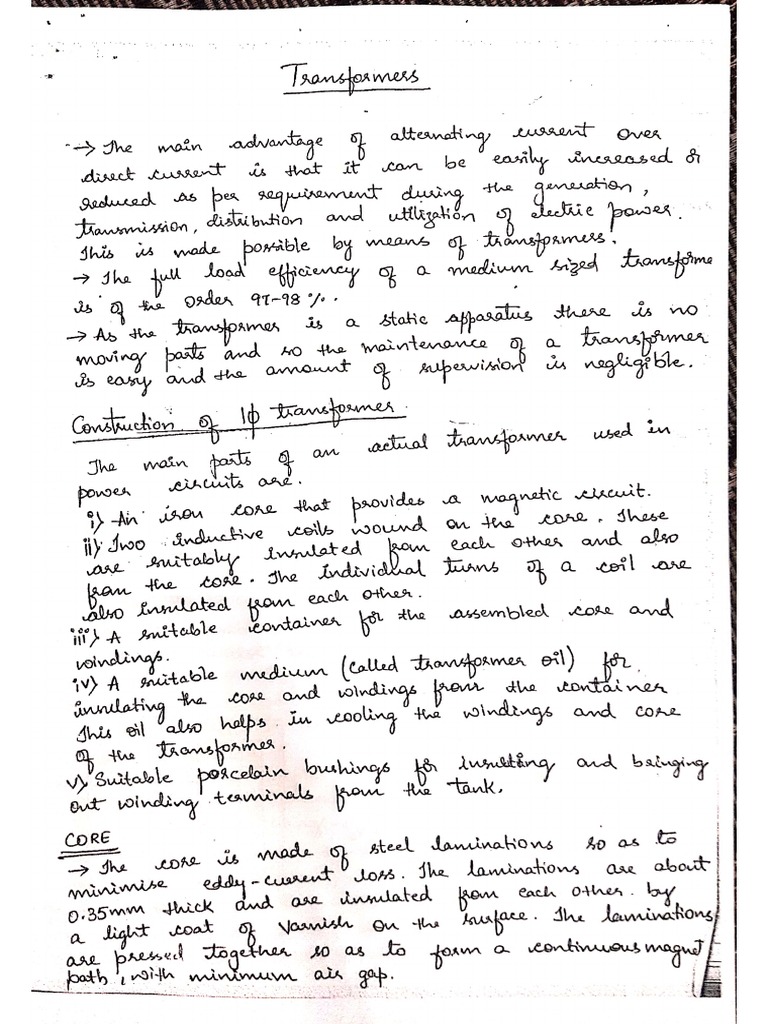 Transformers
→ The main advantage of alternating current over
direct current is that it can be easily increased or
reduced as per requirement during the generation,
transmission, distribution and utilization of electric power.
This is made possible by means of transformers.
→ The full load efficiency of a medium sized transforme
is of the order 97-98%.
→ As the transformer is a static apparatus there is no
moving parts and so the maintenance of a transformer
is easy and the amount of supervision is negligible.
Construction of 1ϕ transformer.
The main parts of an actual transformer used in
power circuits are.
i) An iron core that provides a magnetic circuit.
ii) Two inductive coils wound on the core. These
are suitably insulated from each other and also
from the core. The individual turns of a coil are
also insulated from each other.
iii) A suitable container for the assembled core and
windings.
iv) A suitable medium (called transformer oil) for
insulating the core and windings from the container
This oil also helps in cooling the windings and core
of the transformer.
v) Suitable porcelain bushings for insulting and bringing
out winding terminals from the tank.
CORE
→ The core is made of steel laminations so as to
minimise eddy-current loss. The laminations are about
0.35mm thick and are insulated from each other by
a light coat of varnish on the surface. The laminations
are pressed together so as to form a continuous magnet
path, with minimum air gap.